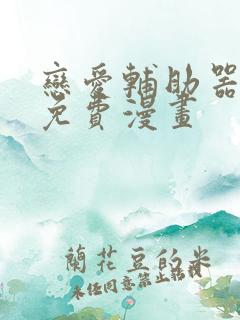 戀愛輔助器
免費漫畫
蘭花豆的米
未经同意禁止转载